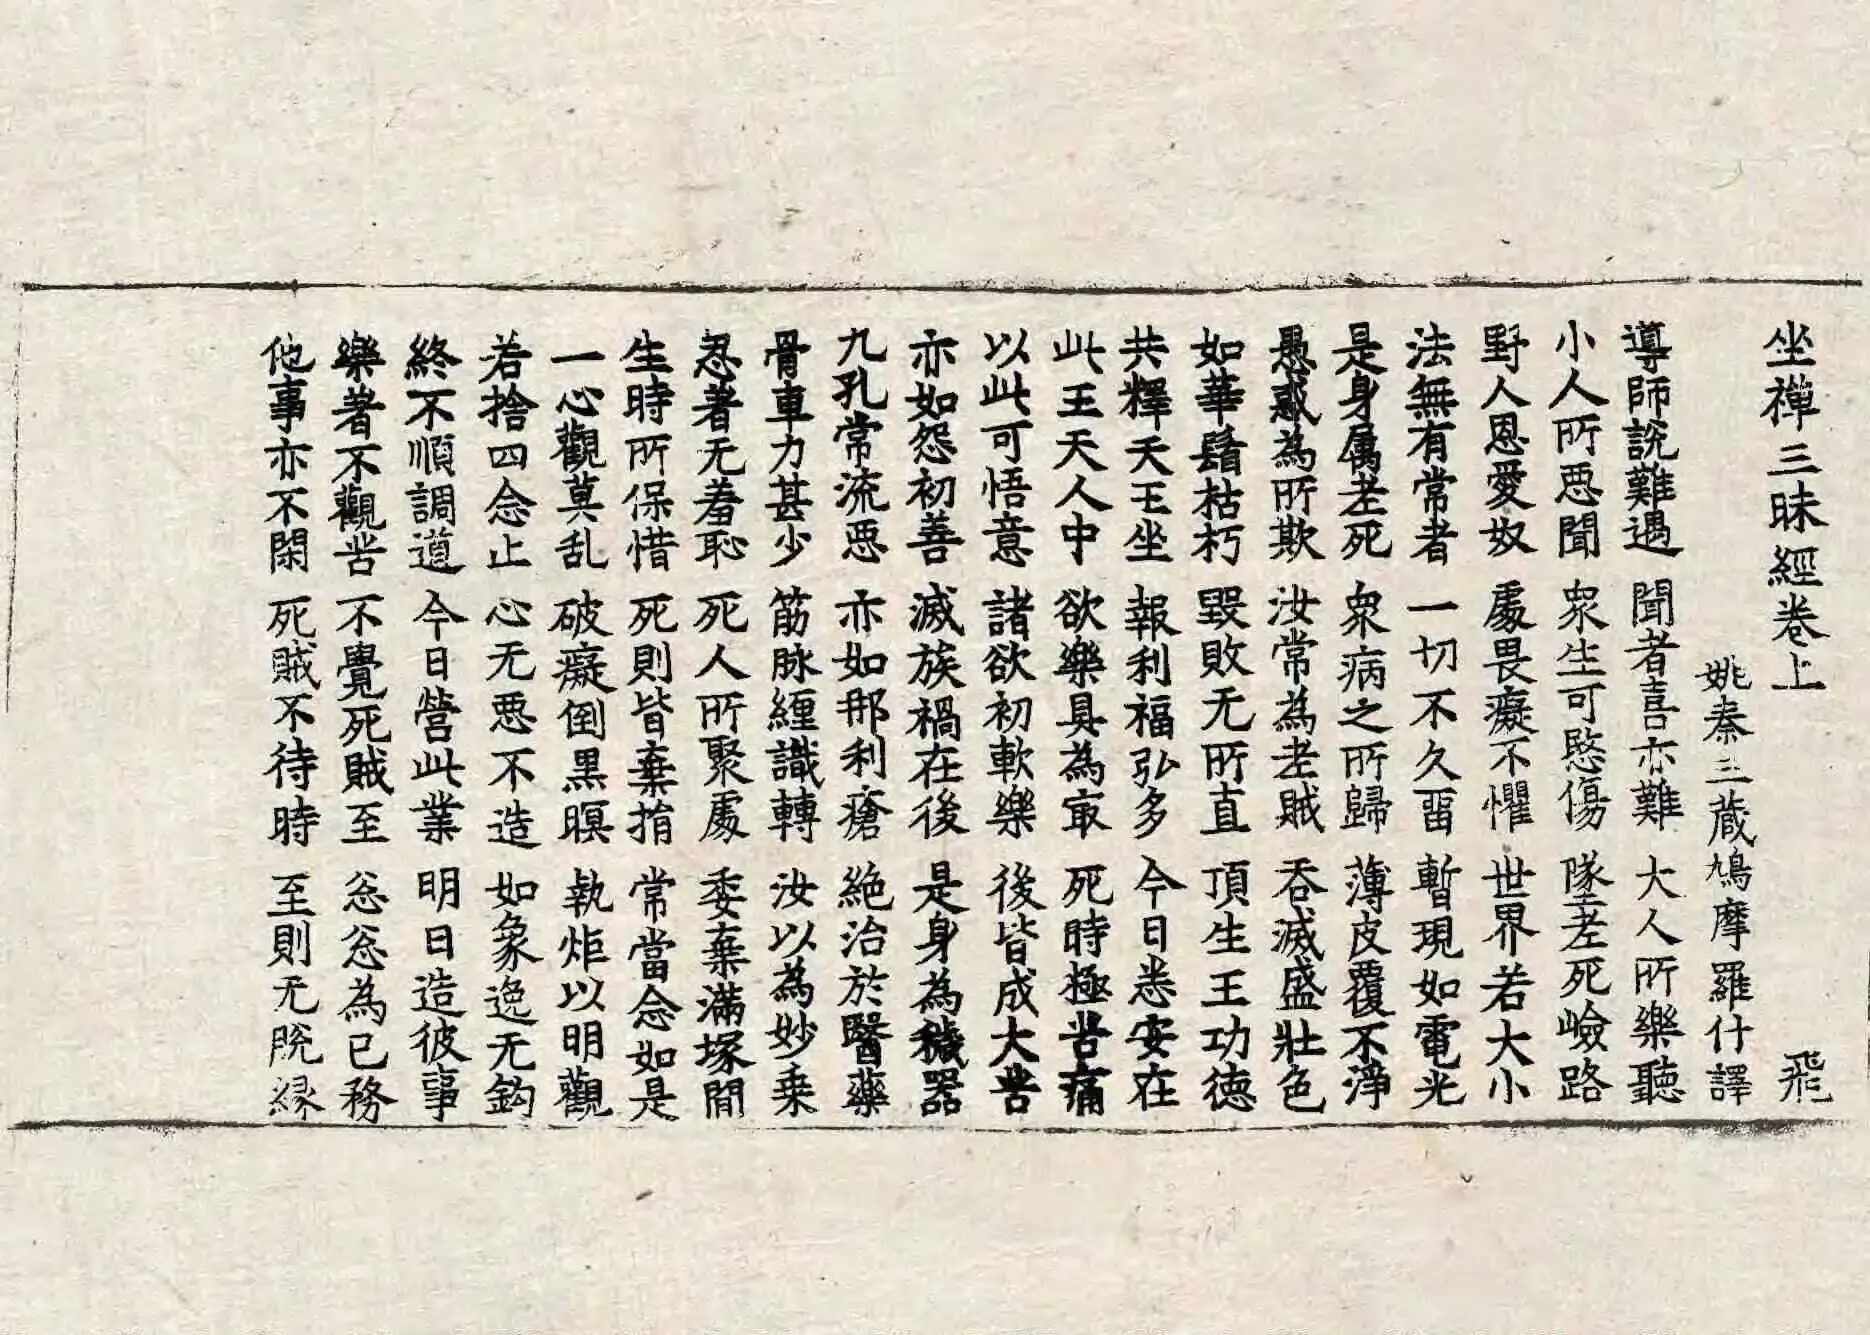 坐禪三昧經卷上 飛
姚秦三蔵鳩摩羅什譯
導師說難遇 聞者喜亦難 大人所樂聽
小人所惡聞 衆生可愍傷 墜老死嶮路
野人恩愛奴 處畏癡不懼 世界若大小
法無有常者 一切不久畱 暫現如電光
是身属老死 衆病之所歸 薄皮覆不淨
愚惑為所欺 汝常為老賊 吞滅盛壯色
如華鬘枯朽 毀敗无所直 頂生王功德
共釋天王坐 報利福弘多 今日悉安在
此王天人中 欲樂具為冣 死時極苦痛
以此可悟意 諸欲初軟樂 後皆成大苦
亦如怨初善 滅族禍在後 是身為穢器
九孔常流惡 亦如那利瘡 絶治於醫藥
骨車力甚少 筋脉纏識轉 汝以為妙乗
忍著无羞恥 死人所聚處 委棄滿塚間
生時所保惜 死則皆棄捐 常當念如是
一心觀莫乱 破癡倒黒暝 執炬以明觀
若捨四念止 心无惡不造 如象逸无鈎
終不順調道 今日營此業 明日造彼事
樂著不觀苦 不覺死賊至 忩忩為已務
他事亦不閑 死賊不待時 至則无脫縁